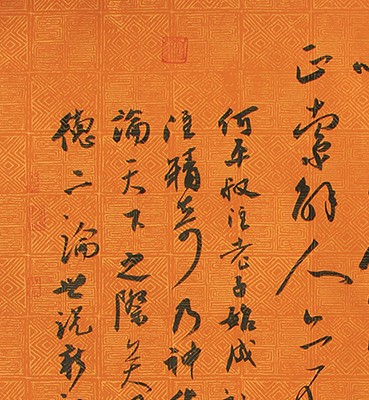 正索解人亦
何平叔注老子始成
注精奇乃神
論天下之際矣
德二論世說新